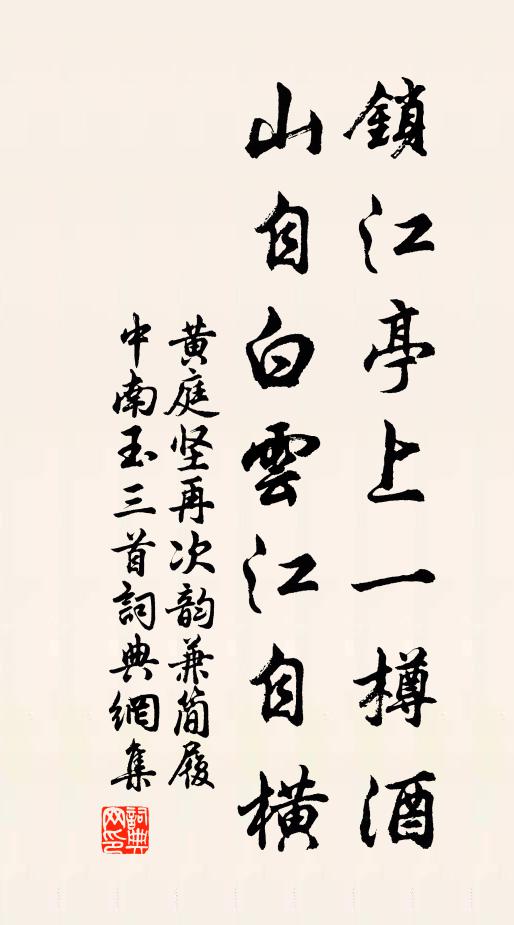 鎖江亭上一樽酒
山自白雲江自橫
黄庭坚再次韵兼简履
中南玉三首詞典網集
詞典
网印